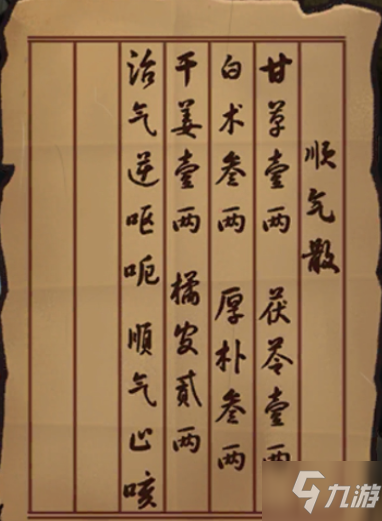 顺气散
甘草壹两 茯苓壹两
白术叁两 厚朴叁两
干姜壹两 橘皮贰两
治气逆呕呃 顺气止咳
九游